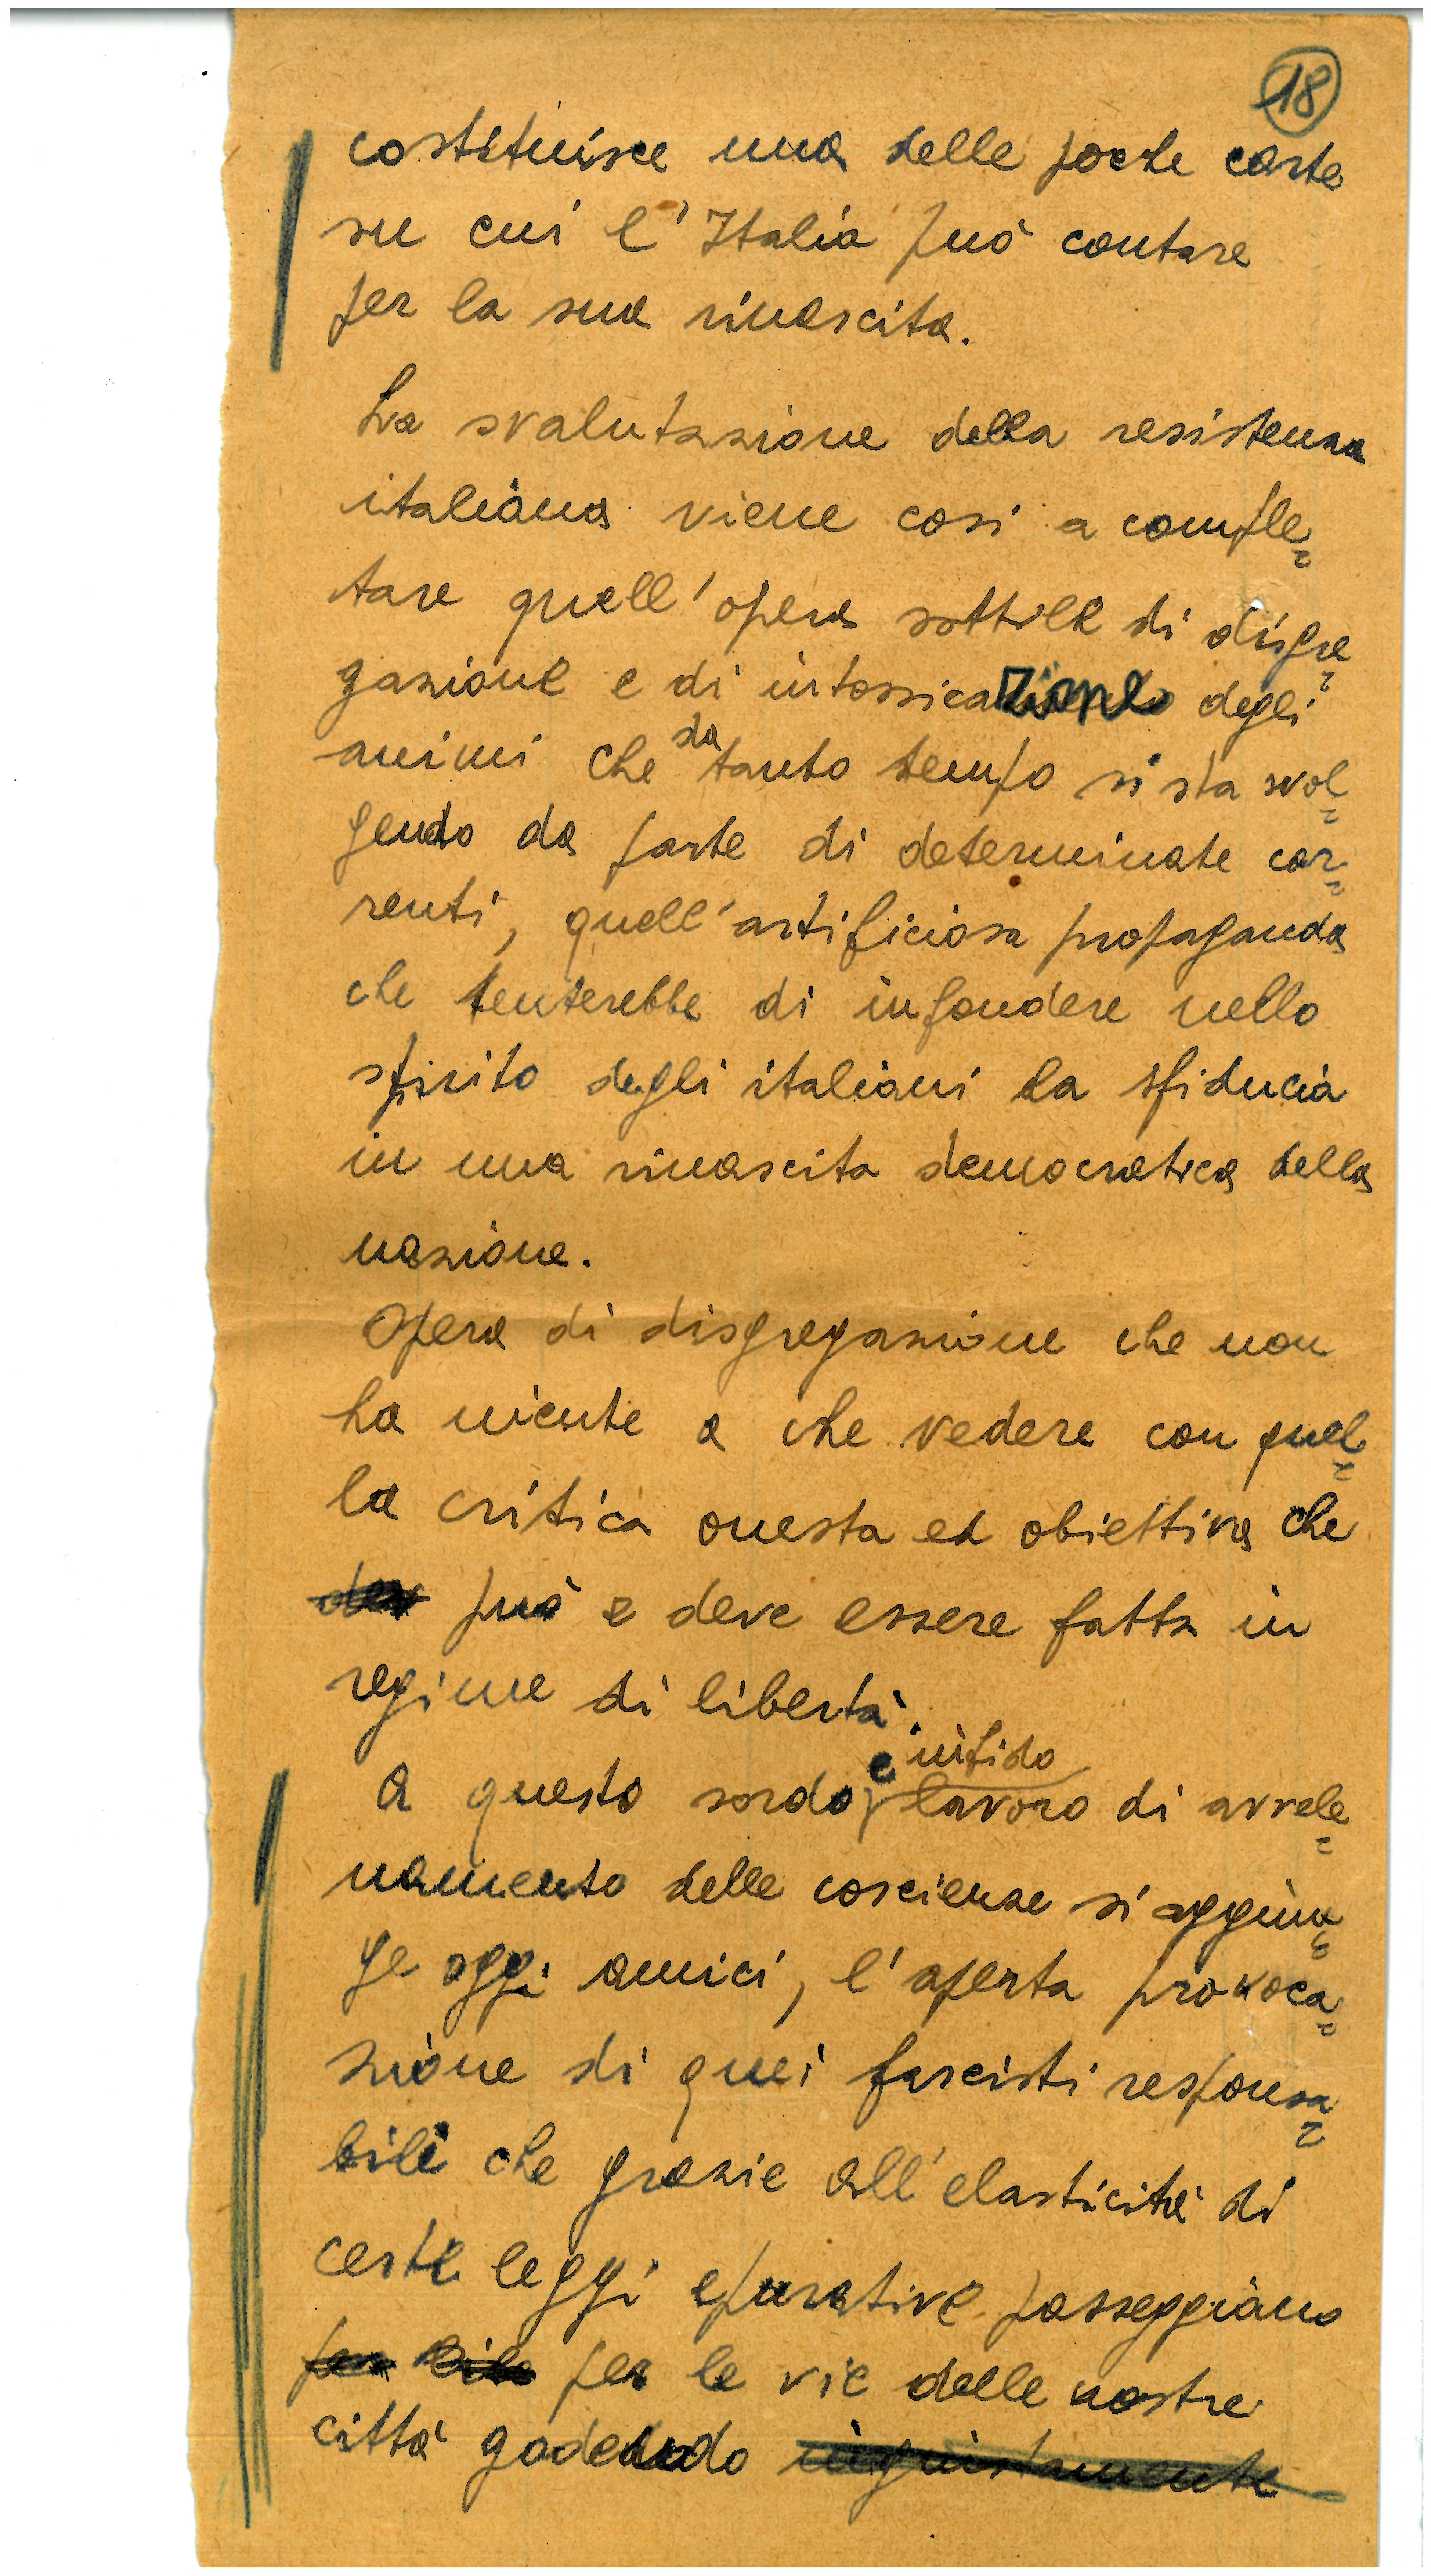 18
costituisce una delle poche carte
su cui l'Italia può contare
per la sua rinascita.
La svalutazione della resistenza
italiana viene così a comple=
tare quell'opera sottile di disgre=
gazione e di intossicazione degli
animi che da tanto tempo si sta svol=
gendo da parte di determinate cor=
renti, quell'artificiosa propaganda
che tenterebbe di infondere nello
spirito degli italiani la sfiducia
in una rinascita democratica della
nazione.
Opera di disgregazione che non
ha niente a che vedere con quel=
la critica onesta ed obiettiva che
può e deve essere fatta in
regime di libertà.
A questo sordo e infido lavoro di avvele=
namento delle coscienze si aggiun=
ge oggi amici, l'aperta provoca=
zione di quei fascisti responsa=
bili che grazie all'elasticità di
certe leggi epurative passeggiano
per le vie delle nostre
città godendo ingiustamente